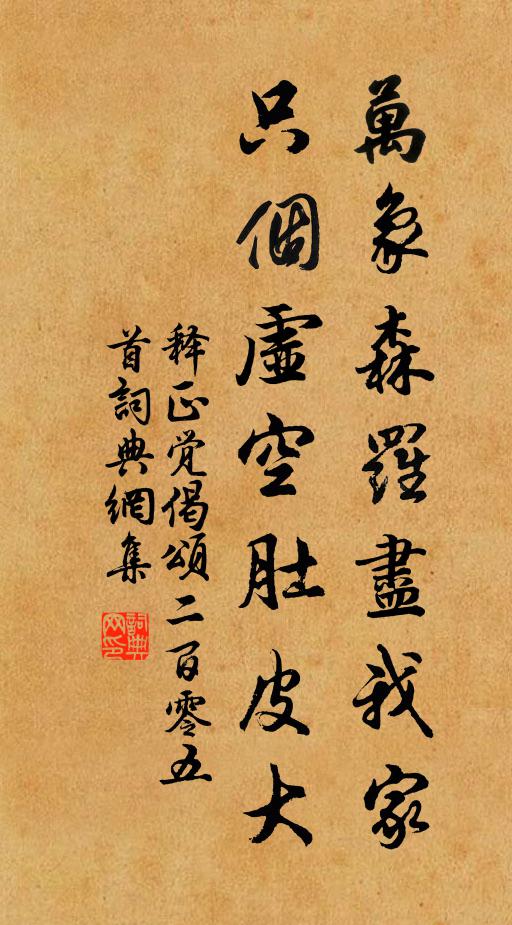 萬象森羅盡我家
只個虛空肚皮大
释正觉偈頌二百零五
首詞典網集
詞典网印